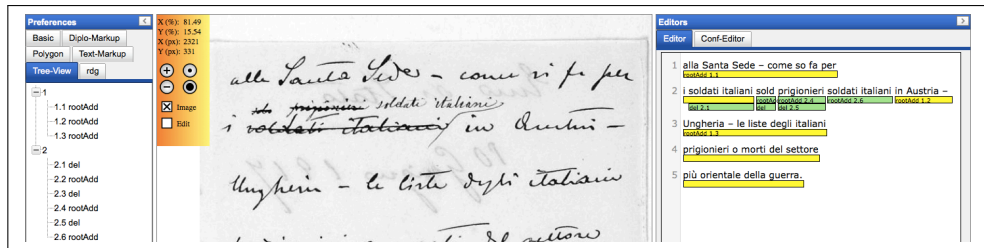 Preferences
Basic Diplo-Markup
Polygon Text-Markup
Tree-View rdg
1
1.1 rootAdd
1.2 rootAdd
1.3 rootAdd
2
2.1 del
2.2 rootAdd
2.3 del
2.4 rootAdd
2.5 del
2.6 rootAdd
X (%): 81.49
Y (%): 15.54
X (px): 2321
Y (px): 331
Image
Edit
alla Santa Sede – come si fa per
prigionieri soldati italiani
i soldati italiani in Austri –
Ungheria – le liste degli italiani
del settore
Editors
Editor Conf-Editor
1 alla Santa Sede – come so fa per
rootAdd 1.1
2 i soldati italiani sold prigionieri soldati italiani in Austria –
rootAdd 2.4 rootAdd 2.6 rootAdd 1.2
del 2.1 del del 2.5
3 Ungheria – le liste degli italiani
rootAdd 1.3
4 prigionieri o morti del settore
5 più orientale della guerra.